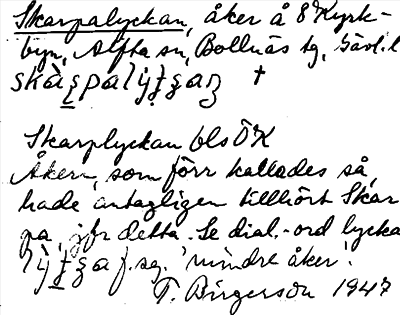 Skarpalyckan, åker å 8 Kyrk-
byn, Alfta sn, Bollnäs tg, Gävl. l
†
Skarplyckan bls ÖK
Åkern, som förr kallades så,
hade antagligen tillhört Skar
pa, jfr detta. Se dial.-ord lycka
f. sg. 'mindre åker'.
T. Birgerson 1947